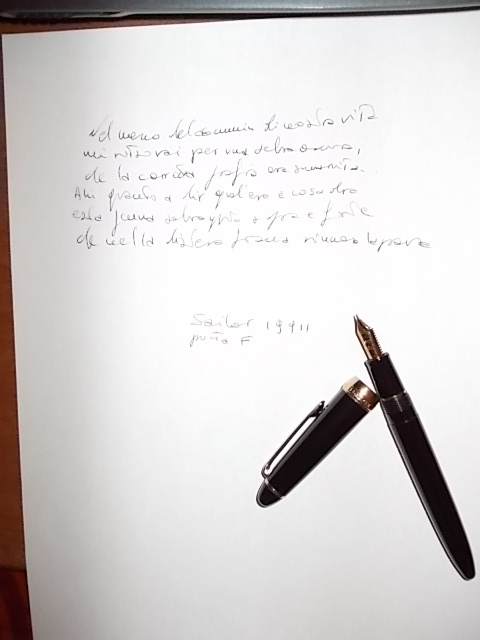 Nel mezzo del cammin di nostra vita
mi ritrovai per una selva oscura,
che la diritta via era smarrita.
Ahi quanto a dir qual era è cosa dura
esta selva selvaggia e aspra e forte
che nel pensier rinnova la paura
Sailor 1911
punta F